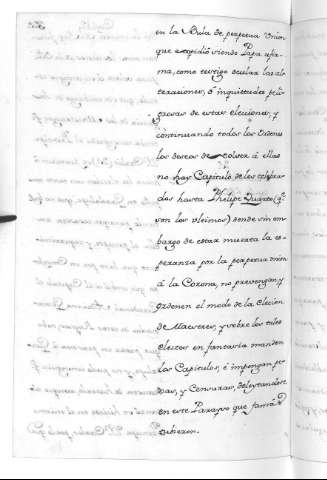 en la Bula de perpetua Union
que expidió siendo Papa afir-
ma, como testigo ocular las al-
teraciones, é inquietudes peli-
grosas de estas elecciones, y
continuando todas las Ordenes
los deseos de volver á ellas
no hay Capitulo de los celebra-
dos hasta Phelipe Quarto (q.
son los ultimos) donde sin em-
bargo de estar muerta la es-
peranza por la perpetua union
á la Corona, no prevengan, y
ordenen el modo de la eleccion
de Maestres, y sobre los tales
electos en fantasia manden
los Capitulos, é impongan pe-
nas, y Censuras, deleytandose
en este Parayso que jamas